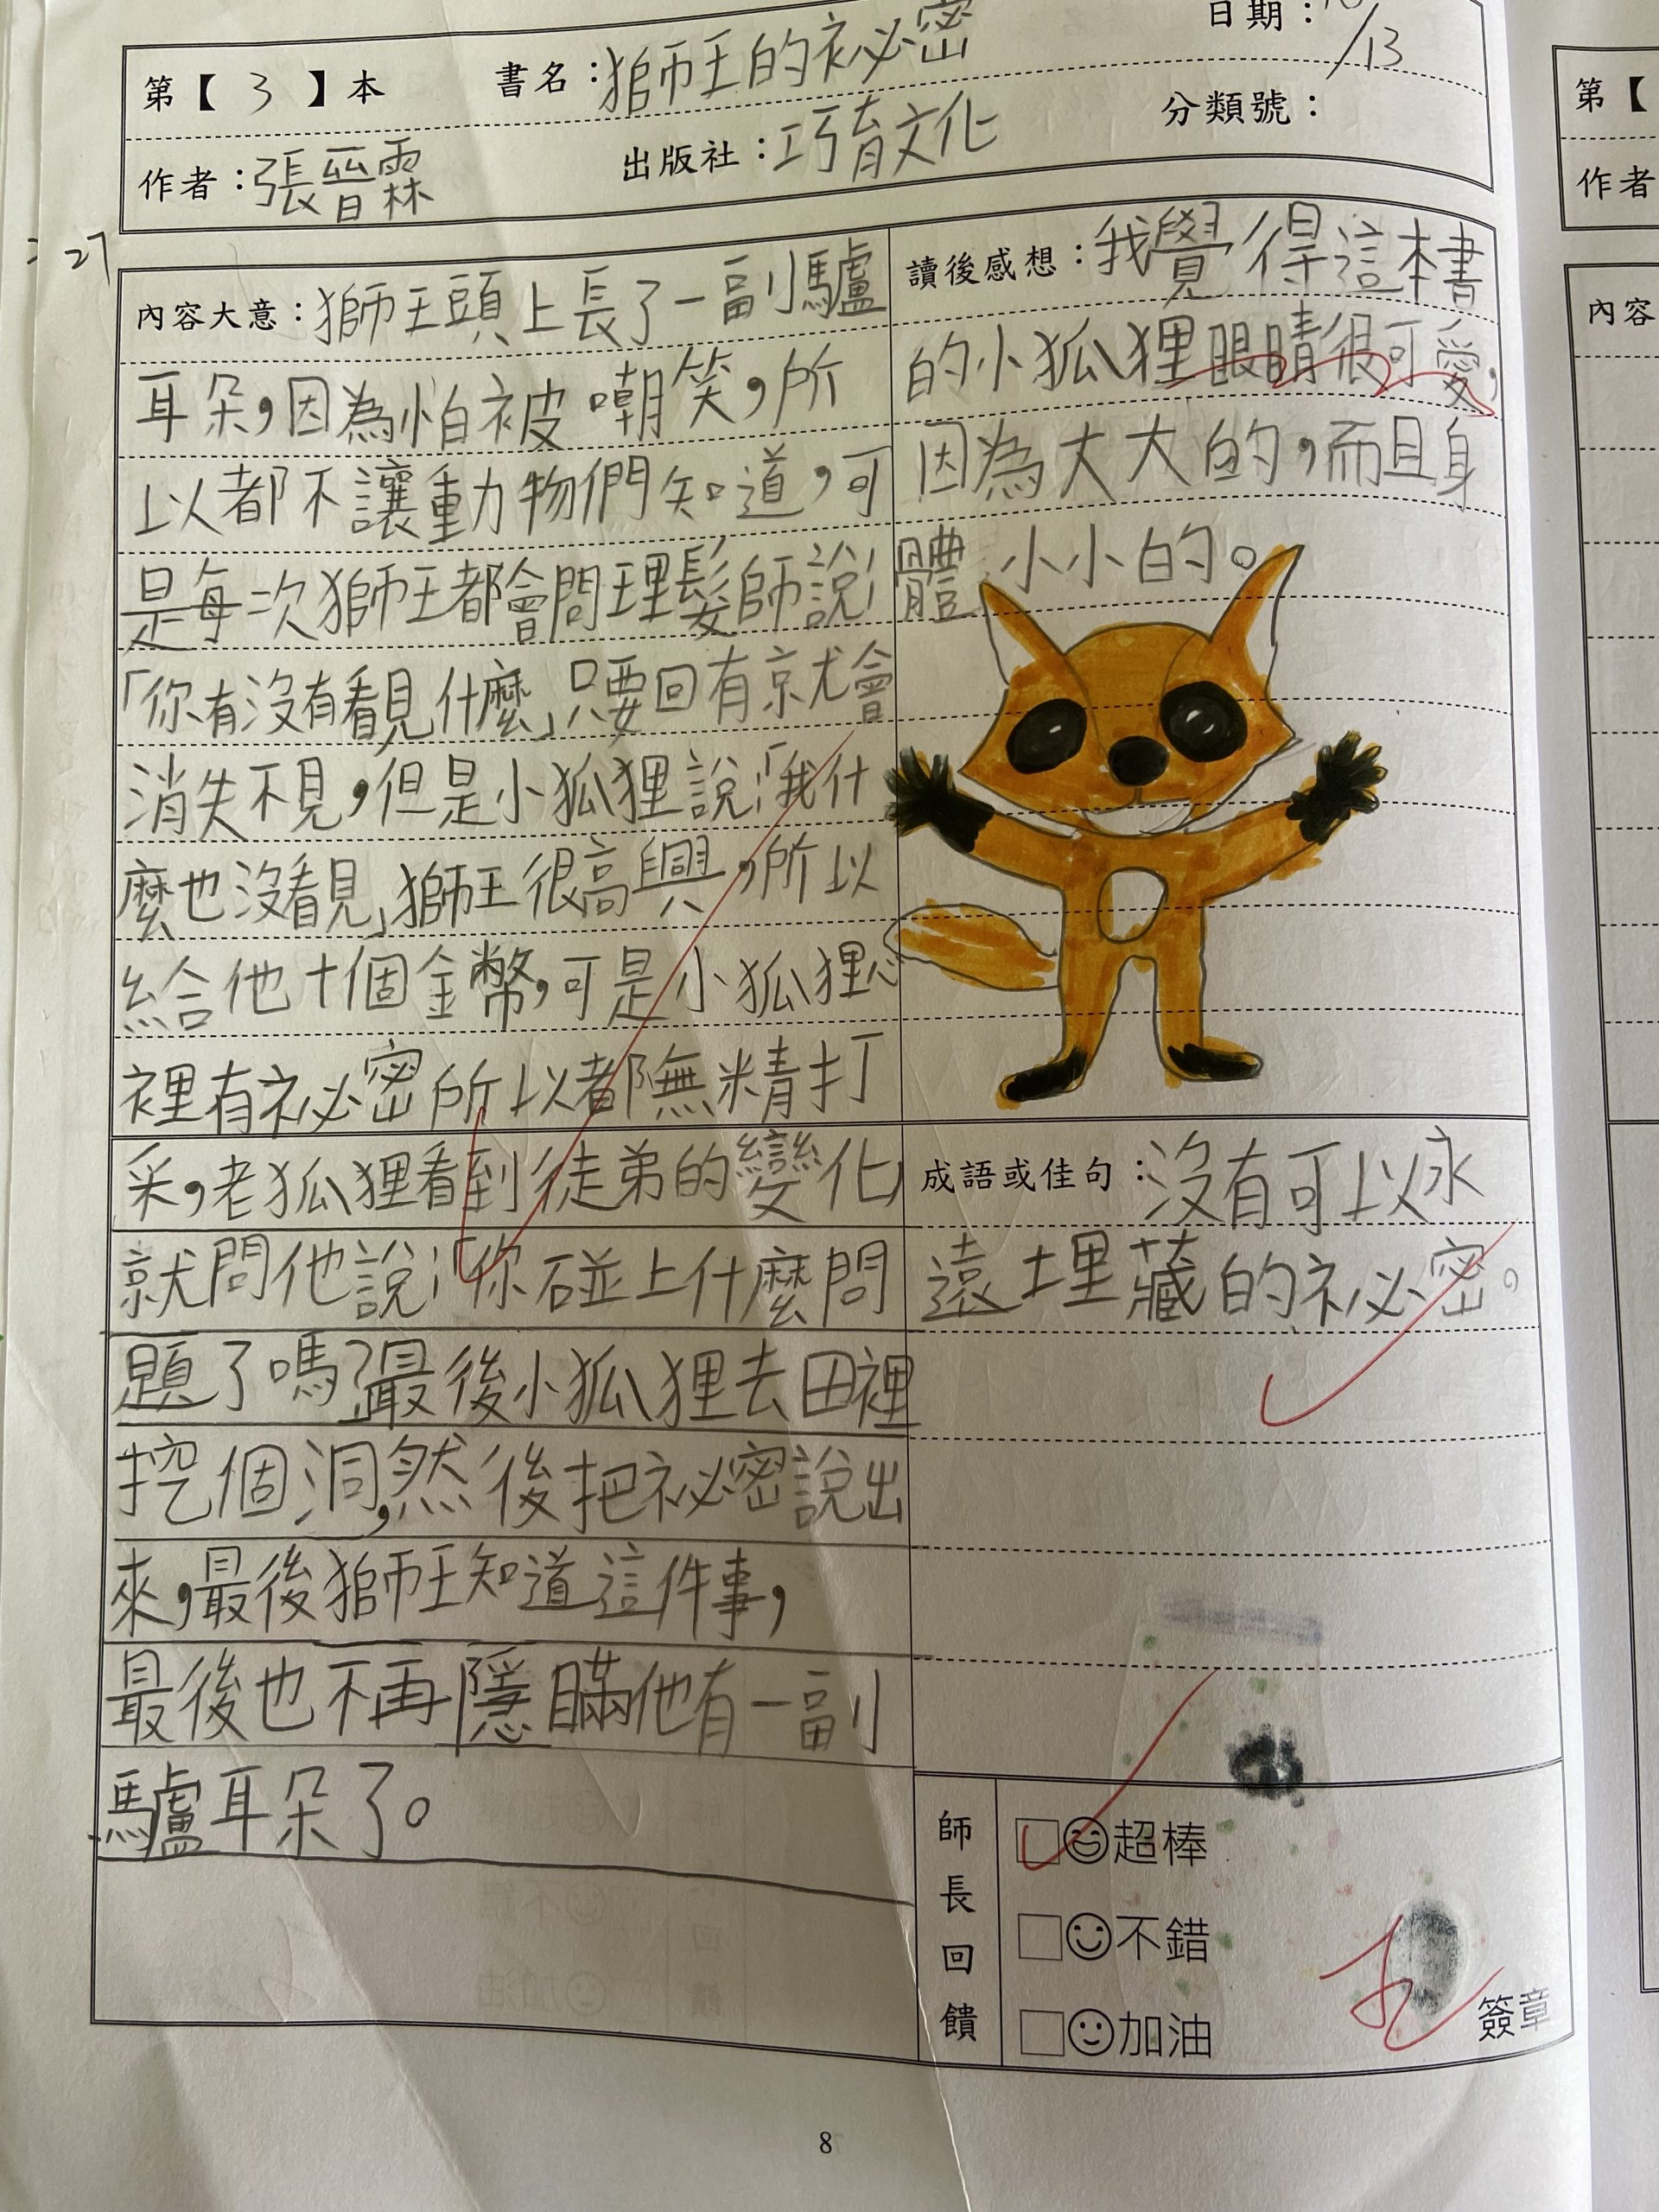 第【3】本 書名：獅王的祕密 日期：10/13
作者：張晉霖 出版社：巧育文化 分類號：
27
內容大意：獅王頭上長了一副驢
耳朵，因為怕被嘲笑，所
以都不讓動物們知道，可
是每次獅王都會問理髮師說：
「你有沒有看見什麼」只要回有就會
消失不見，但是小狐狸說：「我什
麼也沒看見」獅王很高興，所以
給他十個金幣，可是小狐狸心
裡有祕密所以都無精打
采，老狐狸看到徒弟的變化，
就問他說：「你碰上什麼問
題了嗎？」最後小狐狸去田裡
挖個洞，然後把祕密說出
來，最後獅王知道這件事，
最後也不再隱瞞他有一副
驢耳朵了。
讀後感想：我覺得這本書
的小狐狸眼睛很可愛，
因為大大的，而且身
體小小的。
成語或佳句：沒有可以永
遠埋藏的祕密。
師長回饋
超棒
不錯
加油
簽章
8
第【
作者
內容